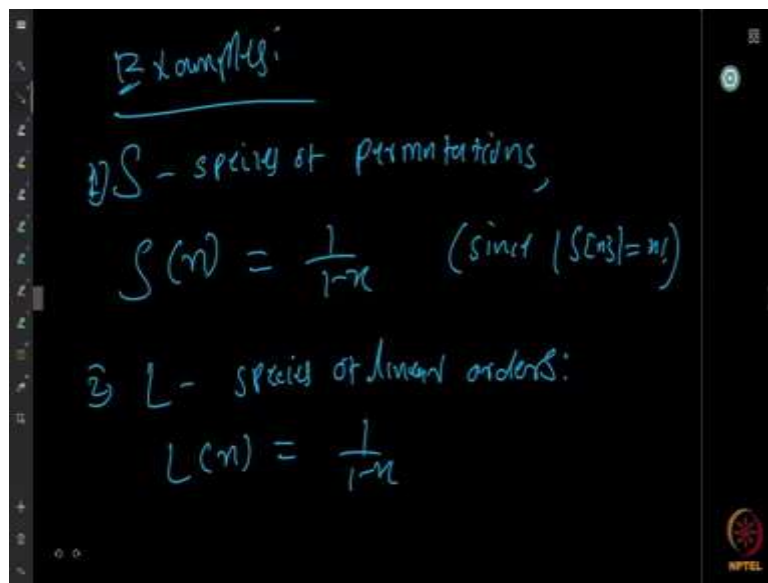 Examples:
1) S - species of permutations,
S(x) = 1/(1-x) (since |S[n]| = n!)
2) L - species of linear orders:
L(x) = 1/(1-x)
NPTEL